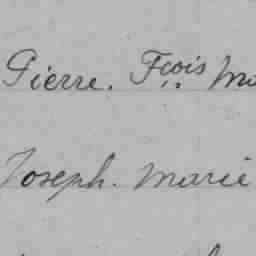 Pierre. Fçois Ma
Joseph. Marie